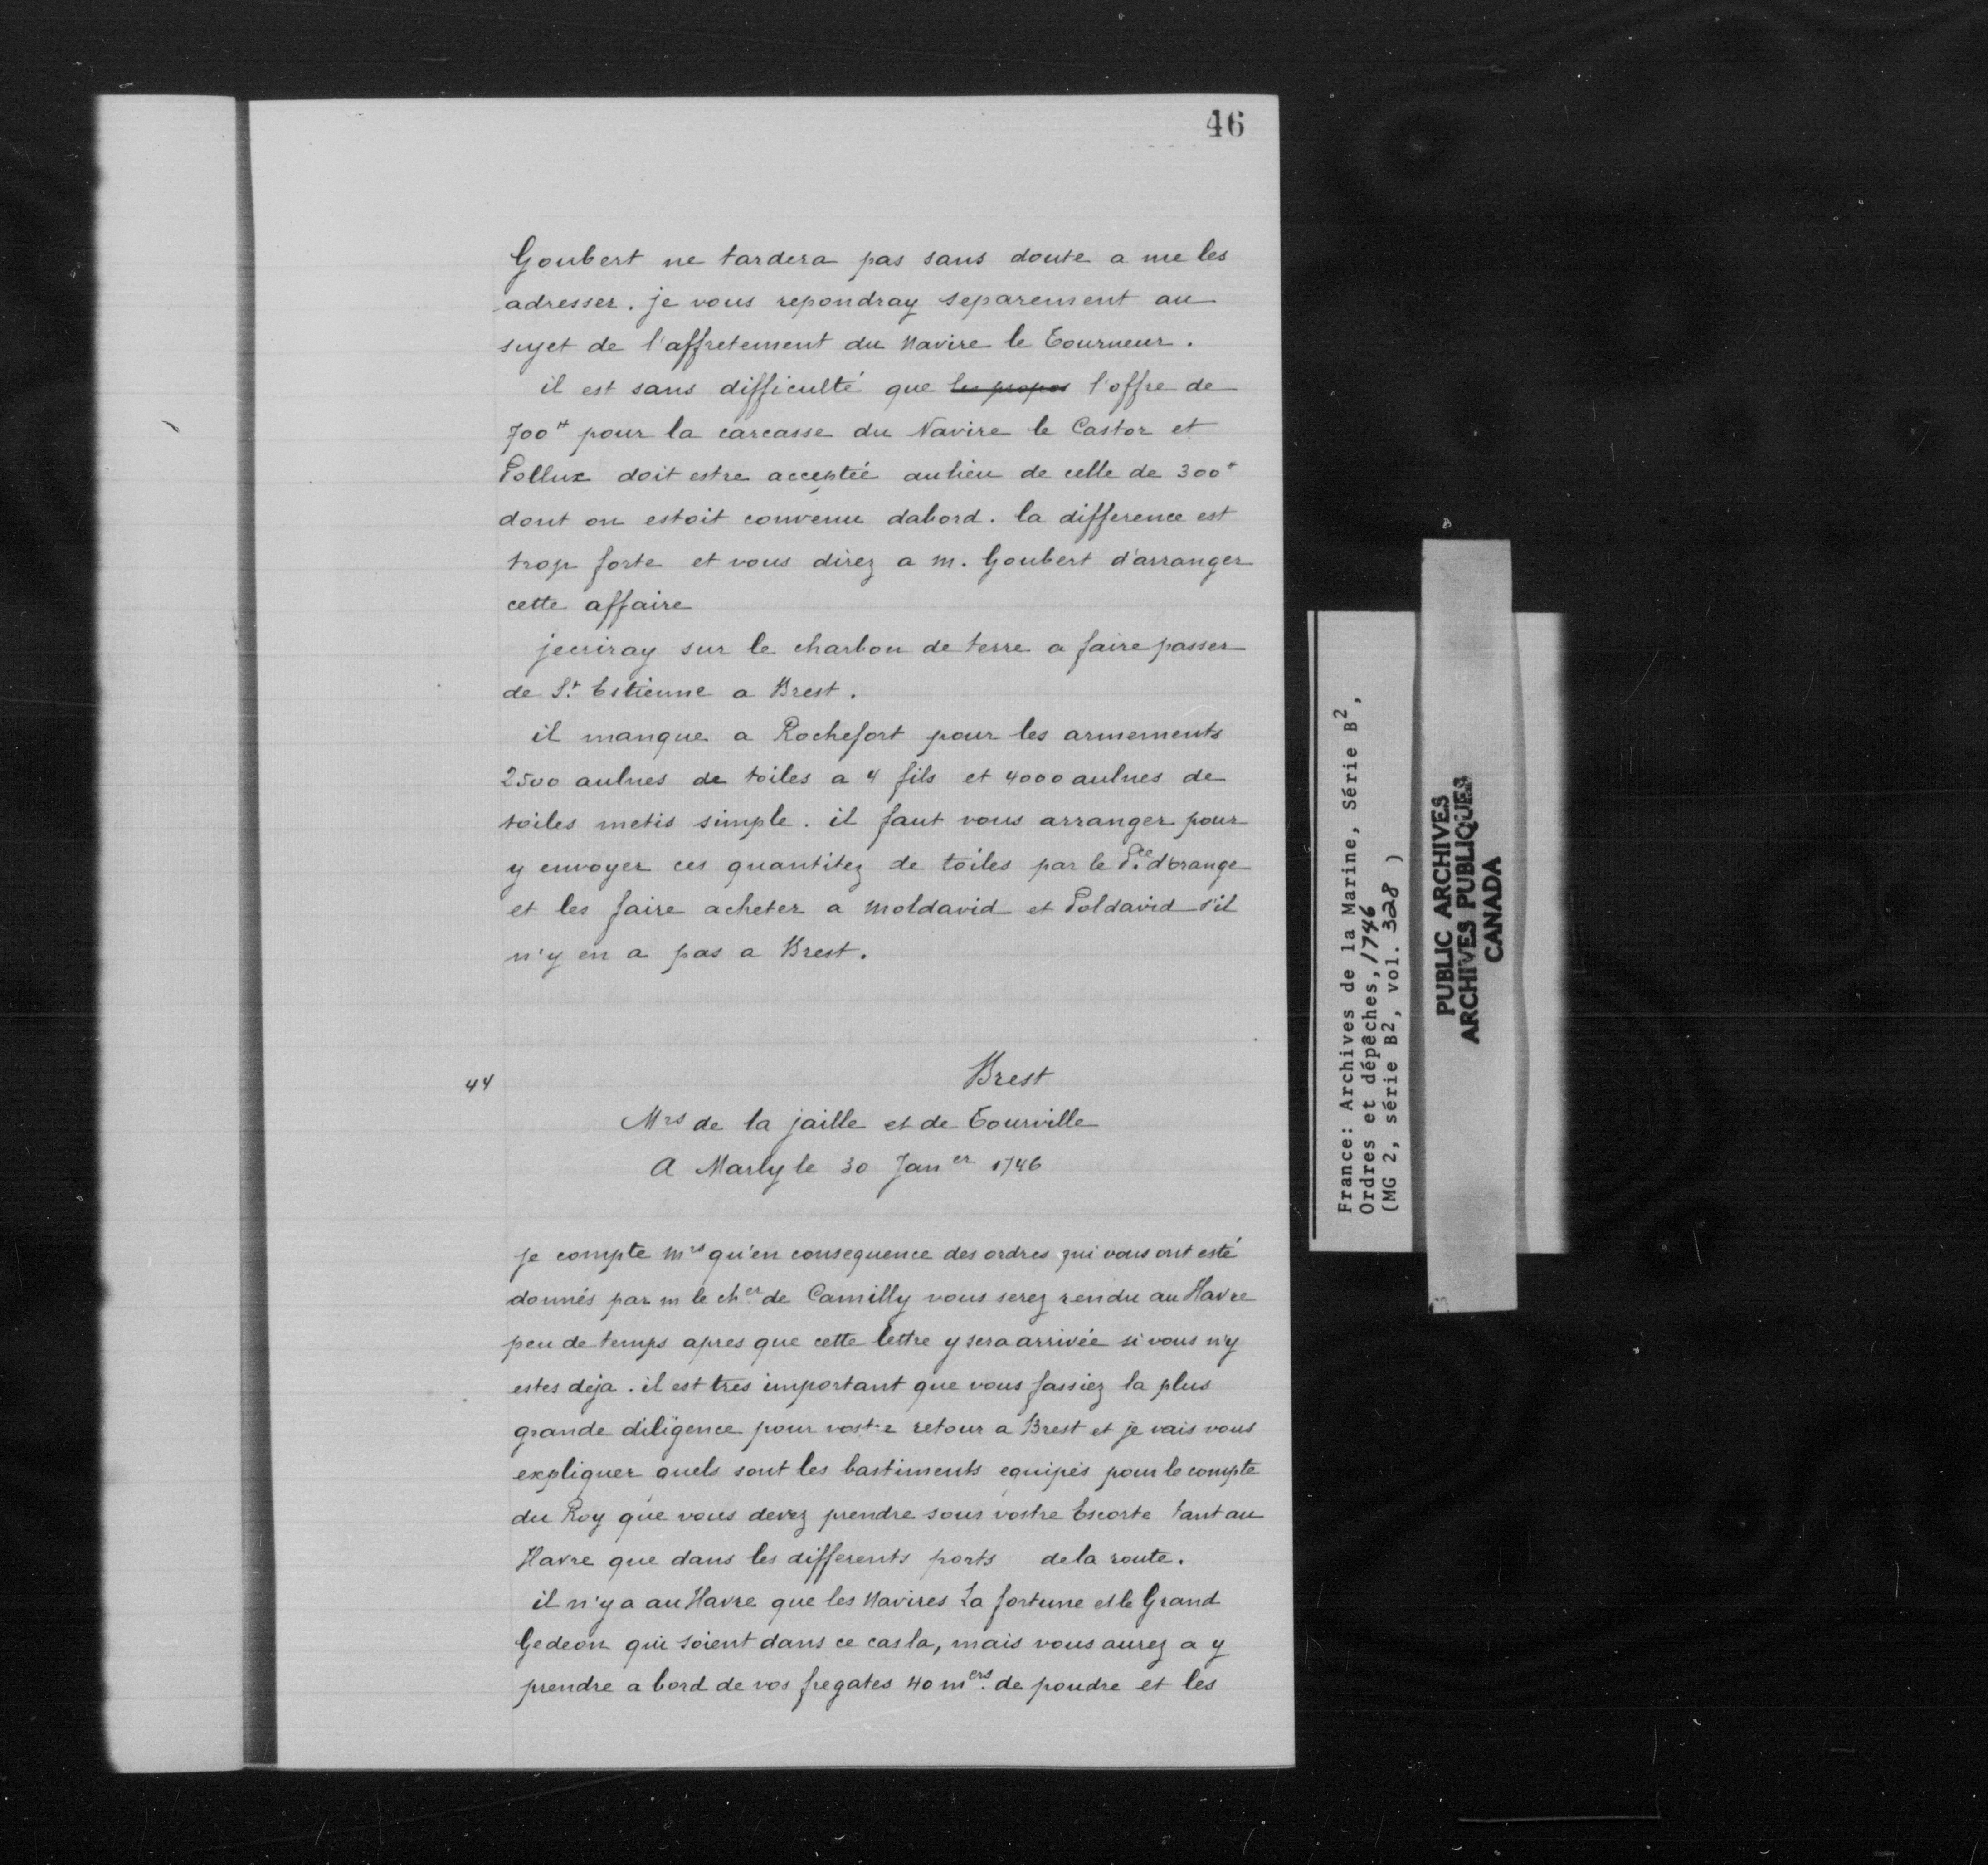 46
Goubert ne tardera pas sans doute a me les
adresser. je vous repondray separement au
sujet de l'affretement du Navire le Tourneur.
il est sans difficulté que les propos l'offre de
700# pour la carcasse du Navire le Castor et
Pollux doit estre acceptée aulieu de celle de 300#
dont on estoit convenu dabord. la difference est
trop forte et vous direz a m. Goubert d'arranger
cette affaire
jecriray sur le charbon de terre a faire passer
de St. Estienne a Brest.
il manque a Rochefort pour les armements
2500 aulnes de toiles a 4 fils et 4000 aulnes de
toiles metis simple. il faut vous arranger pour
y envoyer ces quantitez de toiles par le P.ce d'orange
et les faire acheter a Moldavid et Poldavid s'il
n'y en a pas a Brest.
44 Brest
Mrs de la jaille et de Tourville
A Marly le 30 Janer 1746
je compte mrs qu'en consequence des ordres qui vous ont esté
donnés par m le cher. de Camilly vous serez rendu au Havre
peu de temps apres que cette lettre y sera arrivée si vous n'y
estes deja. il est tres important que vous fassiez la plus
grande diligence pour vostre retour a Brest et je vais vous
expliquer quels sont les bastiments equipés pour le compte
du Roy que vous devez prendre sous vostre Escorte tant au
Havre que dans les differents ports de la route.
il n'y a au Havre que les Navires La fortune et le Grand
Gedeon qui soient dans ce cas la, mais vous aurez a y
prendre a bord de vos fregates 40 mers. de poudre et les
France: Archives de la Marine, Série B2,
Ordres et dépêches, 1746
(MG 2, série B2, vol. 328 )
PUBLIC ARCHIVES
ARCHIVES PUBLIQUES
CANADA